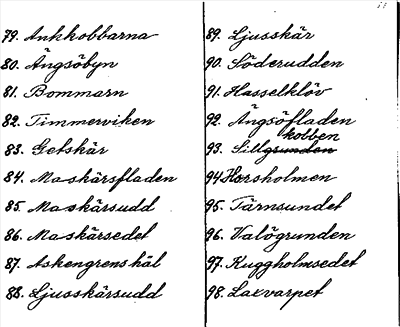 79. Ankkobbarna
80. Ängsöbyn
81. Bommarn
82. Timmerviken
83. Getskär
84. Maskärsfladen
85. Maskärsudd
86. Maskärsedet
87. Askengrenshäl
88. Ljusskärsudd
89. Ljusskär
90. Söderudden
91. Hasselklöv
92. Ängsöfladen
kobben
93. Sillgrunden
94 Horsholmen
95. Tärnsundet
96. Valögrunden
97. Kuggholmsedet
98. Laxvarpet